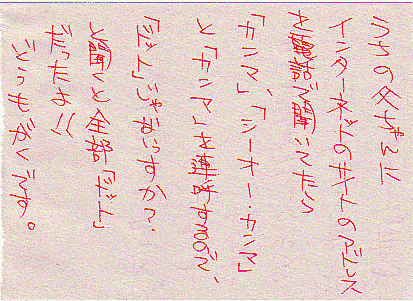 うちの父ちゃんに
インターネットのサイトのアドレス
を電話で聞いてたら
「カンマ」、「シーオー・カンマ」
と「カンマ」を連呼するので、
「ドット」じゃないっすか？
と聞くと全部「ドット」
だったよ!!
どつも
です。